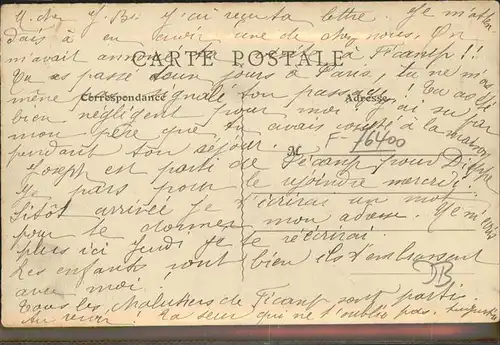 M. cher J. Bte J'ai reçu ta lettre. Je m'atten
dais à en avoir une de chez nous. On
m'avait annoncé ta visite à Fécamp !!
CARTE POSTALE
Tu as passé deux jours à Paris, tu ne m'as
même pas signalé ton passage ! Tu as été
Correspondance
Adresse
bien négligent pour moi. J'ai su par
mon père que tu avais compté à la maison
F-76400
pendant ton séjour.
M
Joseph est parti de Fécamp pour Dieppe
Je pars pour le rejoindre mercredi.
Sitôt arrivée je t'écrirai un mot
pour te donner mon adresse. Je
plus ici Jeudi je te récrirai.
Les enfants sont bien ils t'embrassent
avec moi.
DB
Tous les Malouins de Fécamp sont partis.
Au revoir ! Ta sœur qui ne t'oublie pas. Augustine